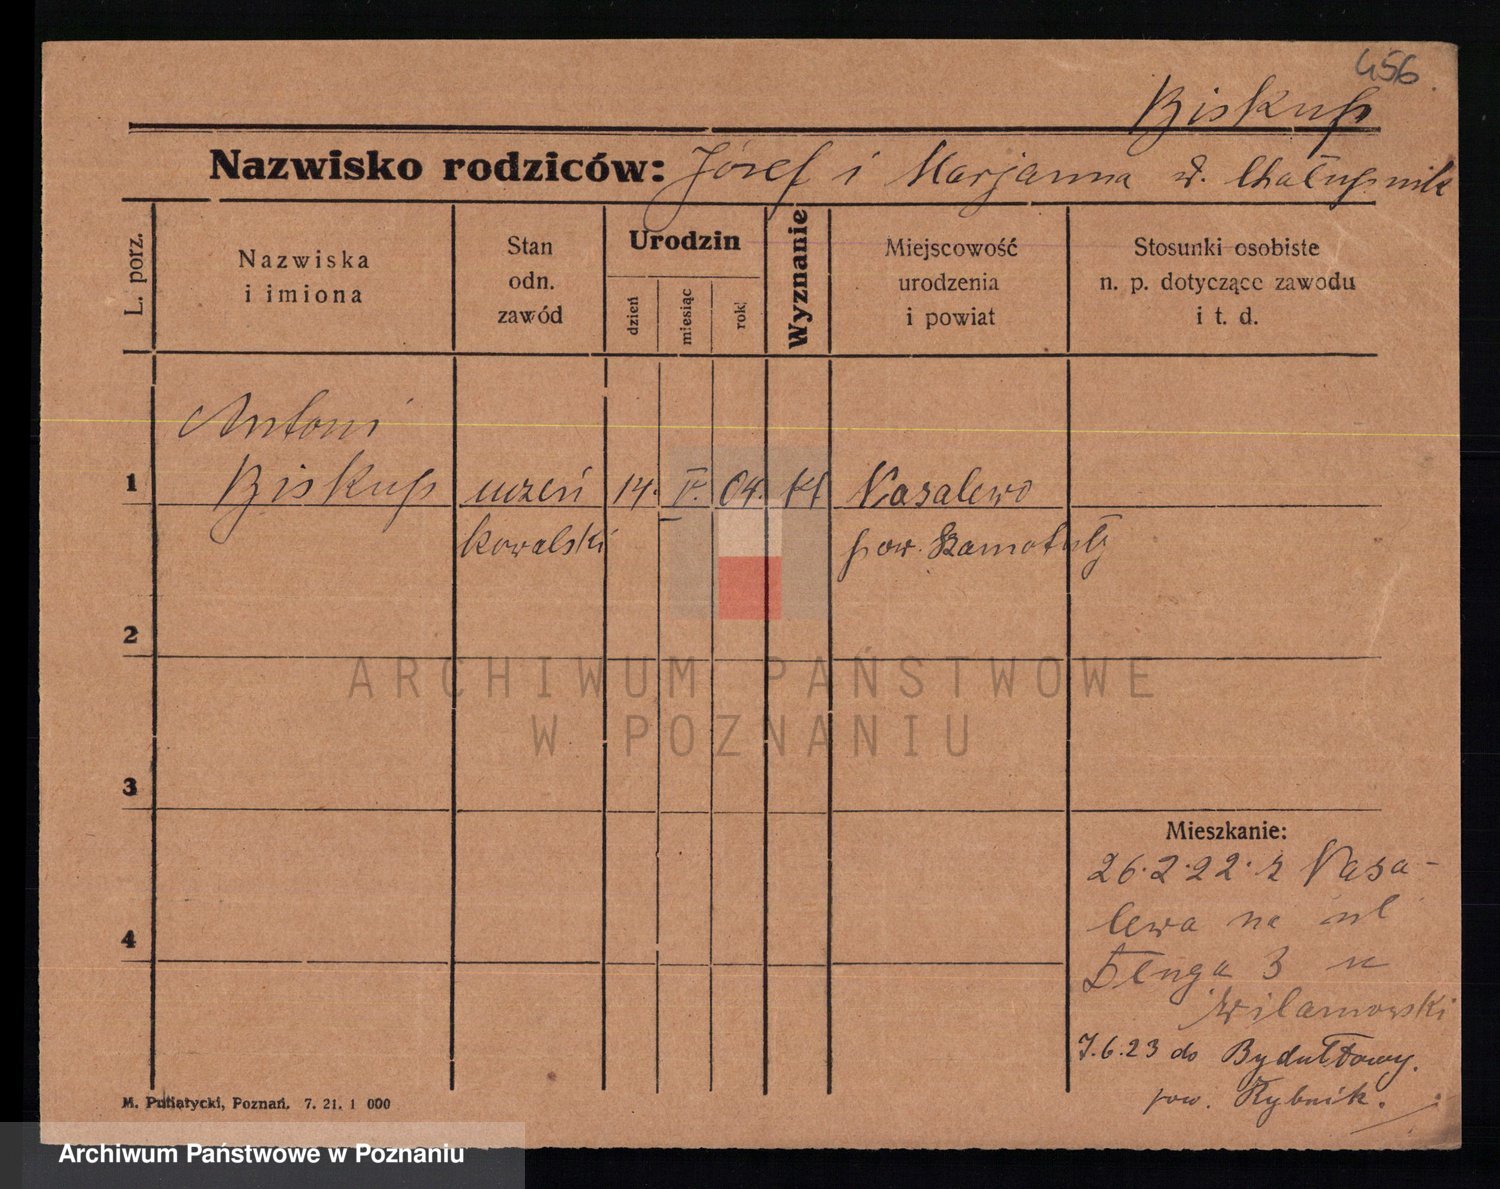 456.
Biskup
Nazwisko rodziców: Józef i Marjanna z. Chałupnik
L. porz.
Nazwiska
i imiona
Stan
odn.
zawód
Urodzin
dzień
miesiąc
rok
Wyznanie
Miejscowość
urodzenia
i powiat
Stosunki osobiste
n. p. dotyczące zawodu
i t. d.
Antoni
1 Biskup uczeń 14. V. 04. kt Nasalewo
kowalski pow. Szamotuły
2
ARCHIWUM PAŃSTWOWE
W POZNANIU
3
Mieszkanie:
26.2.22. z Nasa-
lewa na ul
4
Długa 3 u
Wilamowski
7.6.23 do Bydułtowy.
pow. Rybnik.
M. Putiatycki, Poznań. 7. 21. 1 000
Archiwum Państwowe w Poznaniu